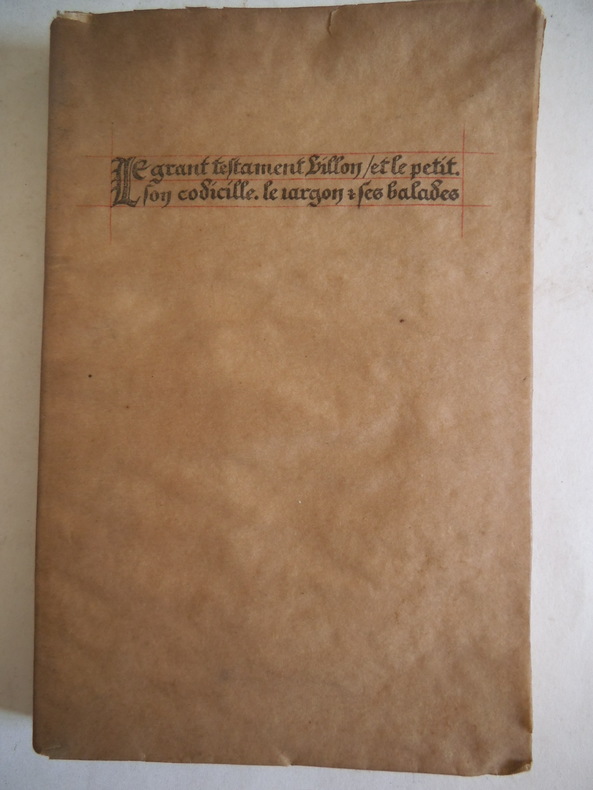 Le grant testament Villon / et le petit.
son codicille. le iargon ⁊ ses balades